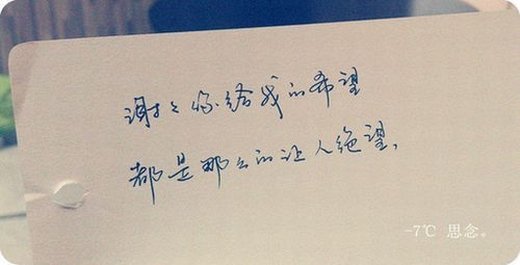 谢谢你给我的希望
都是那么的让人绝望，
-7℃ 思念。